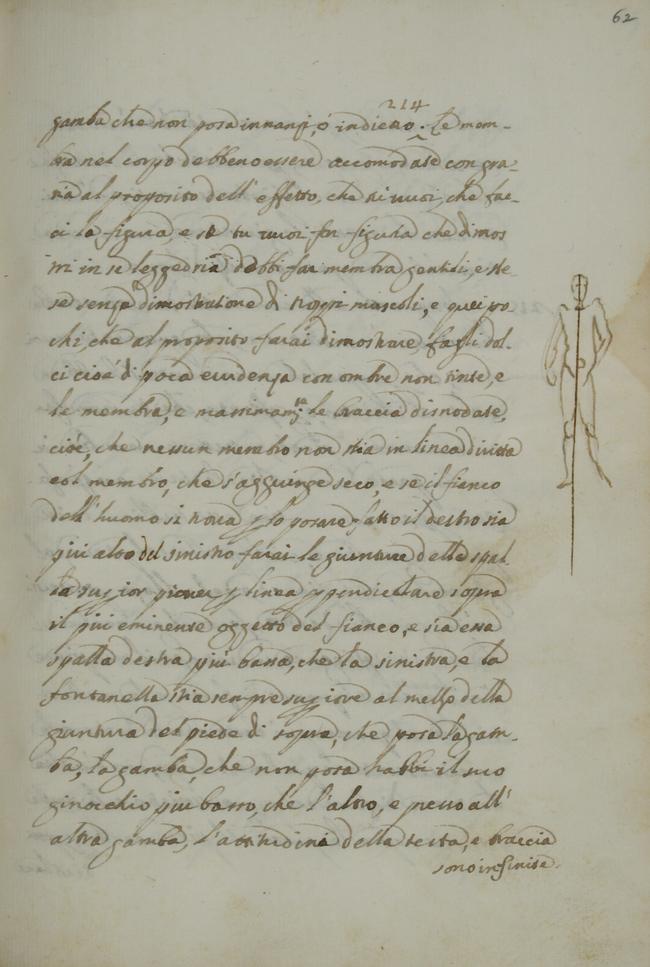 62
214
gamba che non posa innanzi, ó indietro. Le mem-
bra nel corpo debbeno essere accomodate con gra-
tia al proposito dell' effetto, che tu vuoi, che fac-
ci la figura, e se tu vuoi far figura che dimos
tri in se leggedria debbi far membra gentili, e ste
se senza dimostratione di troppi muscoli, e quei po-
chi, che al proposito farai dimostrare, fagli dol-
ci cioé di poca evidenza con ombre non tinte, e
le membra, e massimam.te le braccia disnodate,
cióe, che nessun membro non stia in linea diritta
col membro, che s'aggiunge seco, e se il fianco
dell' huomo si trova p lo posare fatto il destro sia
piu alto del sinistro farai le giunture della spal
la superior piover p linea ppendiculare sopra
il piu eminente oggetto del fianco, e sia essa
spalla destra piu bassa, che la sinistra, e la
fontanella stia sempre superiore al mezzo della
giuntura del piede di sopra, che posa la gam-
ba, la gamba, che non posa habbi il suo
ginocchio piu basso, che l'altro, e presso all'
altra gamba, l'attitudini della testa, e braccia
sono infinite.